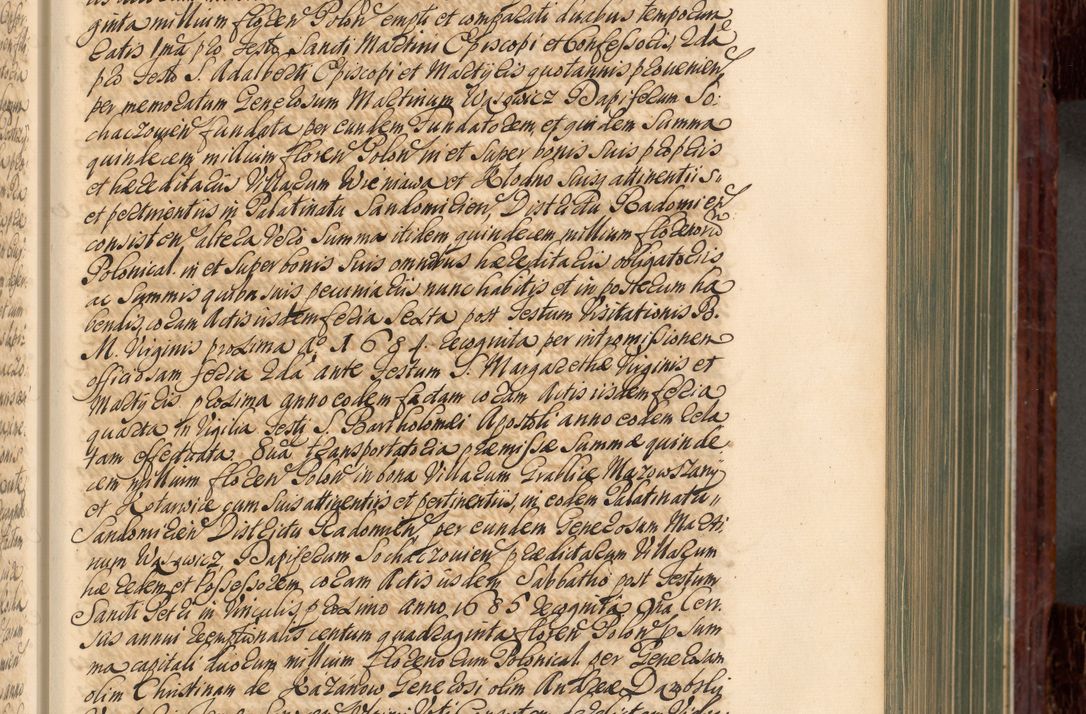 ginta millium floren Polon empti et comparati duabus temporum
ratis 1ma pro festo Sancti Martini Episcopi et Confessoris, 2da
pro festo S. Adalberti Episcopi et Martyris quotannis provenien
per memoratum Generosum Martinum Wąsowicz Dapiferum So:
chaczovien fundata per eundem fundatorem, et quidem summa
quindecem millium floren Polon in et super bonis suis propriis
et hæreditariis Villarum Wieniawa et Kłodno suisq attinentiis
et pertinentiis in Palatinatu Sandomirien, Districtu Radomien
consisten, altera vero summa itidem quindecem millium florenorū
Polonical. in et super bonis suis omnibus hæreditariis obligatoriis
ac summis quibusvis pecuniariis nunc habitis et in posterum ha
bendis, coram Actis iisdem feria sexta post festum Visitationis B.
M. Virginis proxima Ao 1684 recognita per intromissionem
officiosam feria 2da ante festum S. Margarethæ Virginis et
Martyris proxima anno eodem factam coram Actis iisdem feria
quarta in Vigilia festi S. Bartholomæi Apostoli anno eodem rela
tam effectuata. Sua transportatoria præmissæ summæ quinde
cem millium floren Polon in bona Villarum Mazowszany
et Kotarwice cum suis attinentiis et pertinentiis, in eodem Palatinatu
Sandomirien Districtu Radomien, per eundem Generosum Marti
num Wąsowicz, Dapiferum Sochaczovien prædictarum Villarum
hæredem et possessorem coram Actis iisdem Sabbatho post festum
Sancti Petri in Vinculis proximo anno 1685 recognita. Qua Cen:
sus annui reemptionalis centum quadraginta floren Polon p sum
ma capitali duorum millium florenorum Polonical. per Generosam
olim Christinam de Kazanow Generosi olim Andreæ Dąmbsky